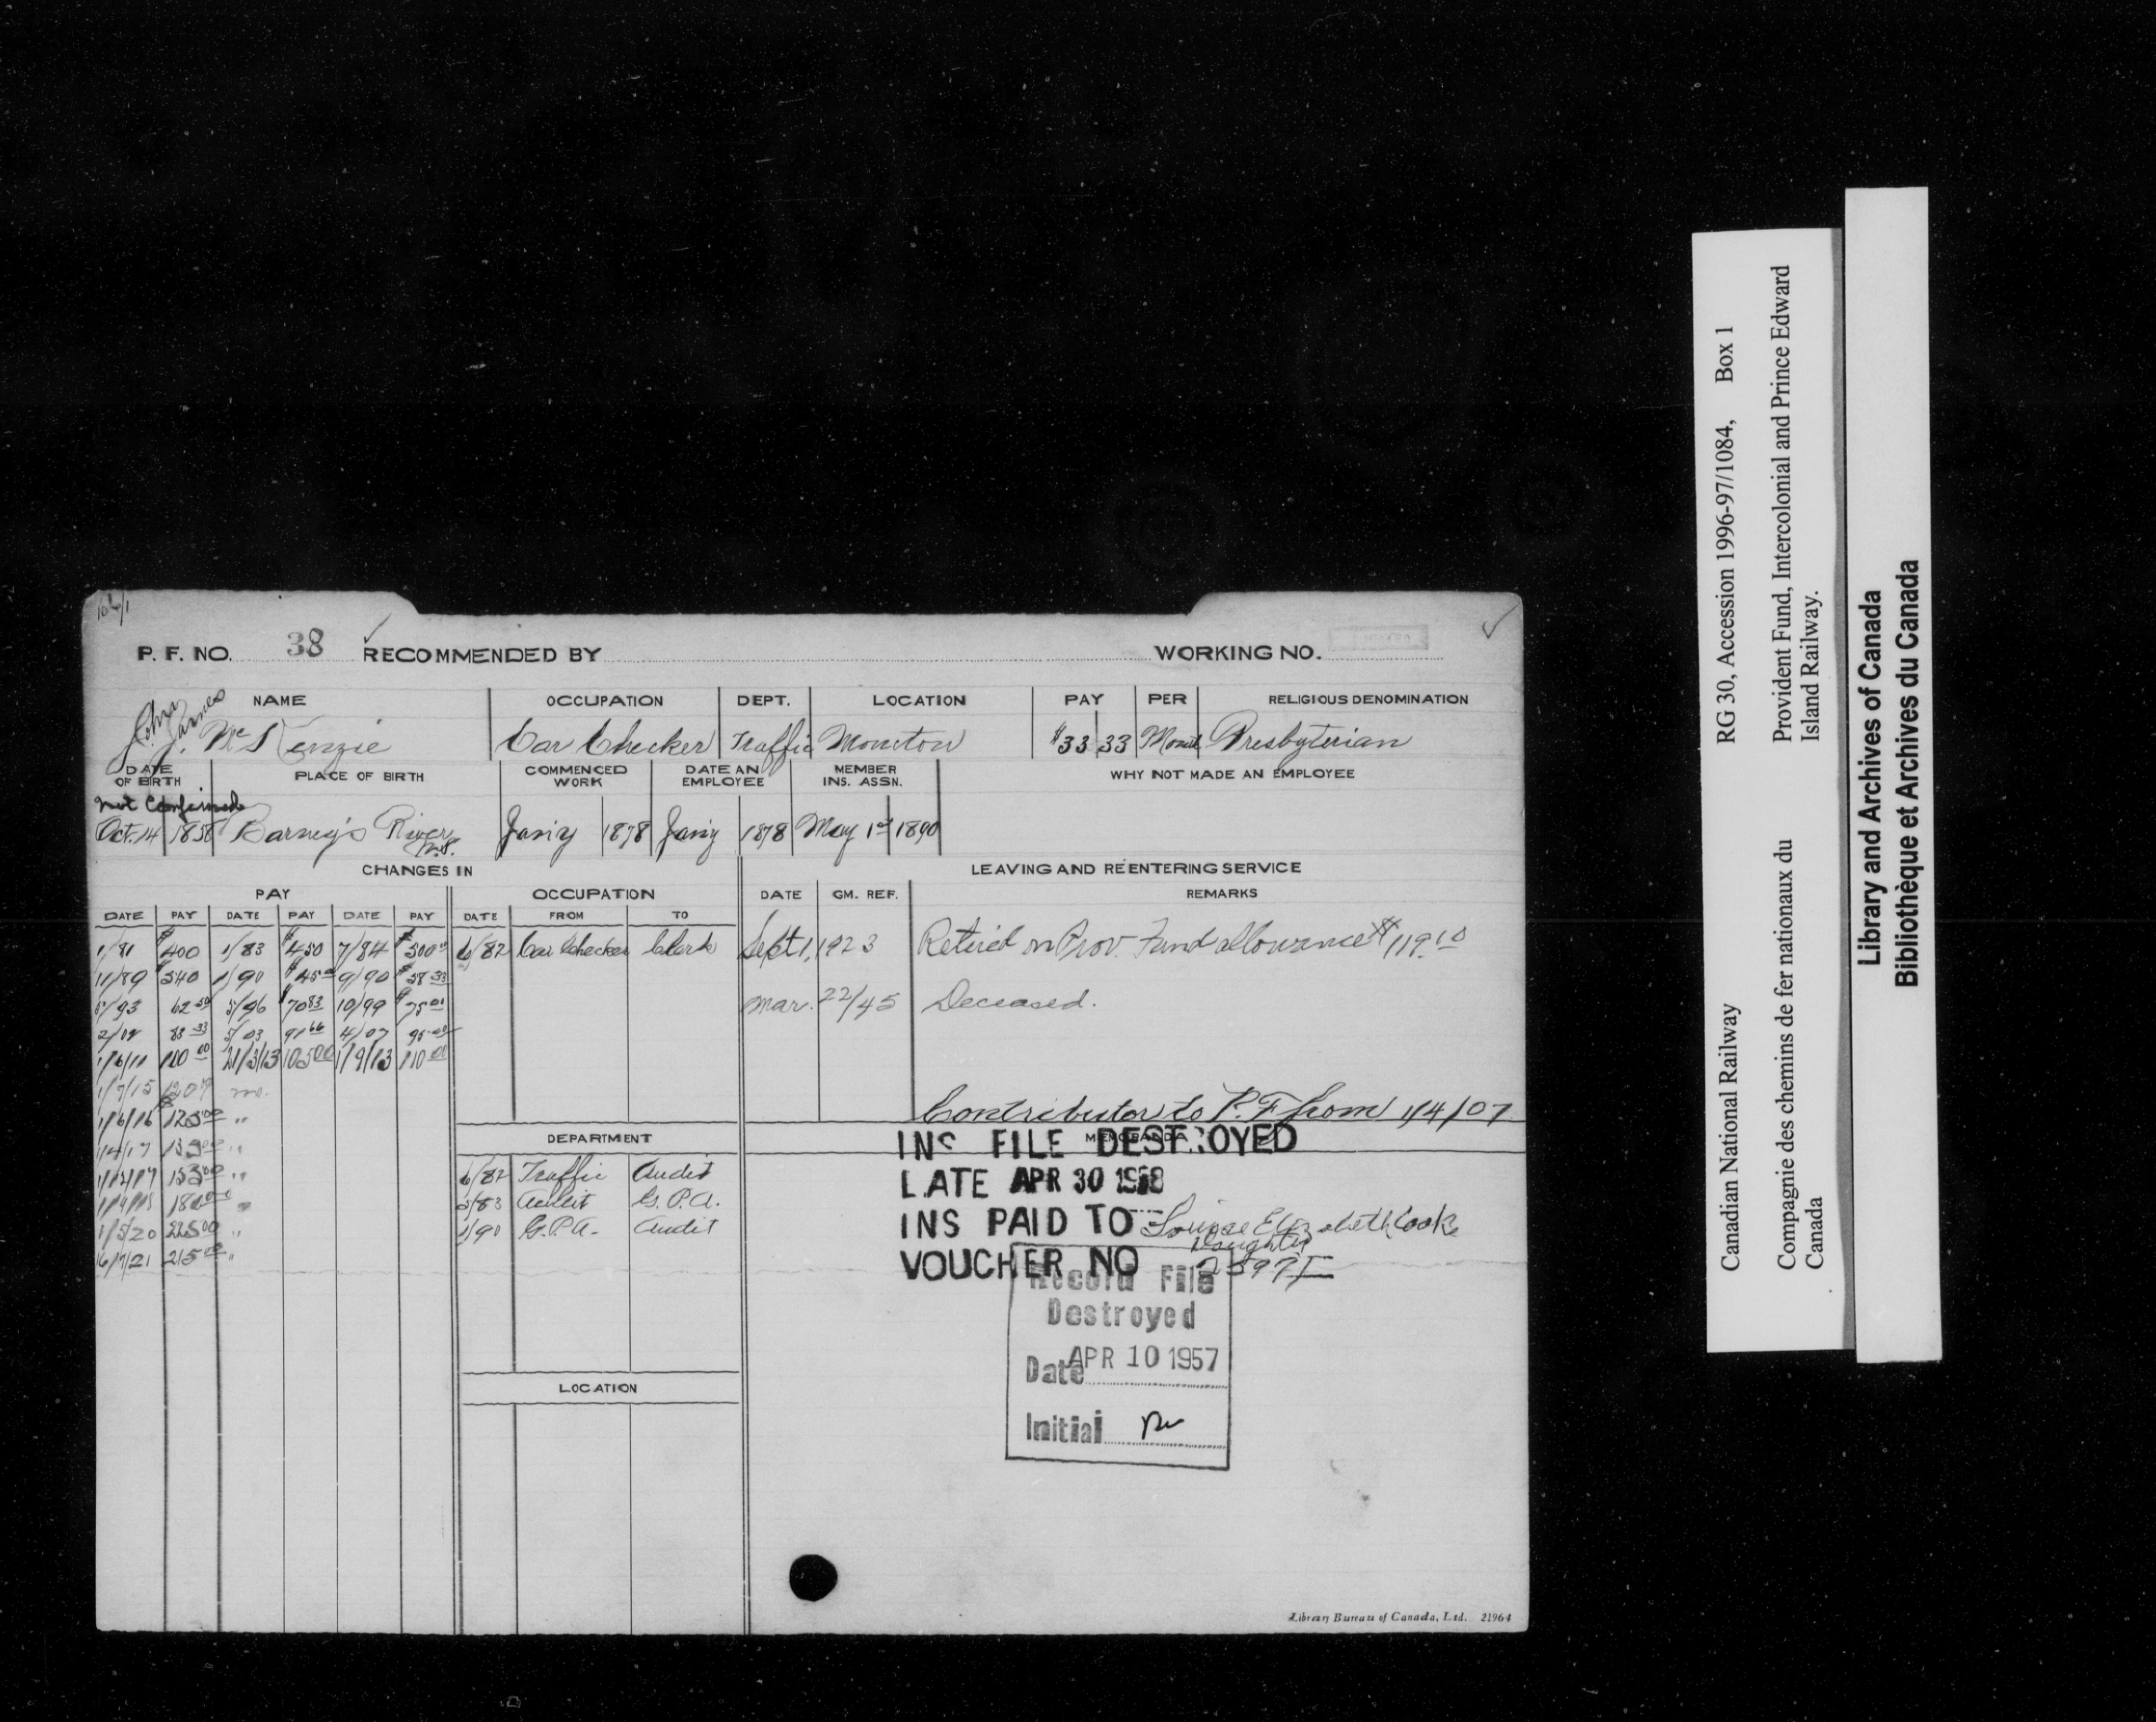 P. F. NO. 38 RECOMMENDED BY WORKING NO.
NAME OCCUPATION DEPT. LOCATION PAY PER RELIGIOUS DENOMINATION
John James
J. J. McKenzie Car Checker Traffic Moncton $33 33 Month Presbyterian
DATE OF BIRTH PLACE OF BIRTH COMMENCED WORK DATE AN EMPLOYEE MEMBER INS. ASSN. WHY NOT MADE AN EMPLOYEE
Not Confirmed
Oct. 14 1858 Barney's River N.S. Jan'y 1878 Jan'y 1878 May 1st 1890
CHANGES IN LEAVING AND REENTERING SERVICE
PAY OCCUPATION DATE GM. REF. REMARKS
DATE PAY DATE PAY DATE PAY DATE FROM TO
1/81 $400 1/83 $450 7/84 $500 6/82 Car Checker Clerk Sept 1, 1923 Retired on Prov. Fund allowance $119.10
11/89 540 1/90 $45 9/90 $58 33
5/93 62 50 5/96 $70 83 10/99 $75 00 Mar. 22/45 Deceased.
2/02 83 33 5/03 91 66 4/07 95 00
1/6/11 100 00 21/3/13 105 00 1/9/13 110 00
1/7/15 120 mo.
1/6/16 125 00 "
1/4/17 135 00 " Contributor to P.F from 1/4/07
DEPARTMENT MEMORANDA
INS FILE DESTROYED
6/82 Traffic Audit
LATE APR 30 1958
5/83 Audit G.P.A.
1/90 G.P.A. Audit
INS PAID TO Louise Elizabeth Cook
Daughter
1/5/20 225 00 "
16/7/21 215 00 "
VOUCHER NO
Record File
Destroyed
Date APR 10 1957
Initial
LOCATION
Library Bureau of Canada, Ltd. 21964
Canadian National Railway RG 30, Accession 1996-97/1084, Box 1
Compagnie des chemins de fer nationaux du Canada
Provident Fund, Intercolonial and Prince Edward Island Railway.
Library and Archives of Canada
Bibliothèque et Archives du Canada